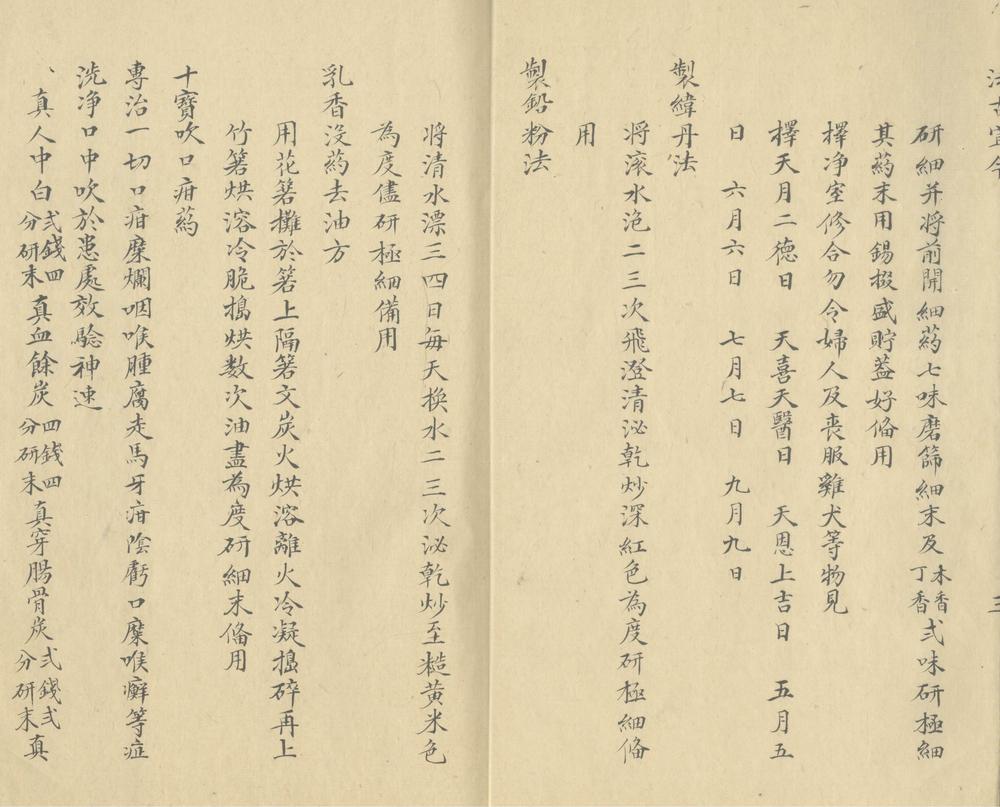 研細并将前開細药七味磨篩細末及木香丁香弍味研極細
其药末用錫掇盛貯蓋好俻用
擇净室修合勿令婦人及丧服雞犬等物見
擇天月二德日 天喜天醫日 天恩上吉日 五月五
日 六月六日 七月七日 九月九日
製緯丹法
将滚水泡二三次飛澄清泌乾炒深紅色為度研極細俻
用
製鉛粉法
将清水漂三四日每天换水二三次泌乾炒至糙黄米色
為度儘研極細備用
乳香没药去油方
用花箬攤於箬上隔箬文炭火烘溶離火冷凝搗碎再上
竹箬烘溶冷脆搗烘数次油盡為度研細末俻用
十寳吹口疳药
專治一切口疳糜爛咽喉腫腐走馬牙疳陰虧口糜喉癬等症
洗净口中吹於患處效驗神速
、真人中白弍錢四分研末 真血餘炭四錢四分研末 真穿腸骨炭弍錢弍分研末 真